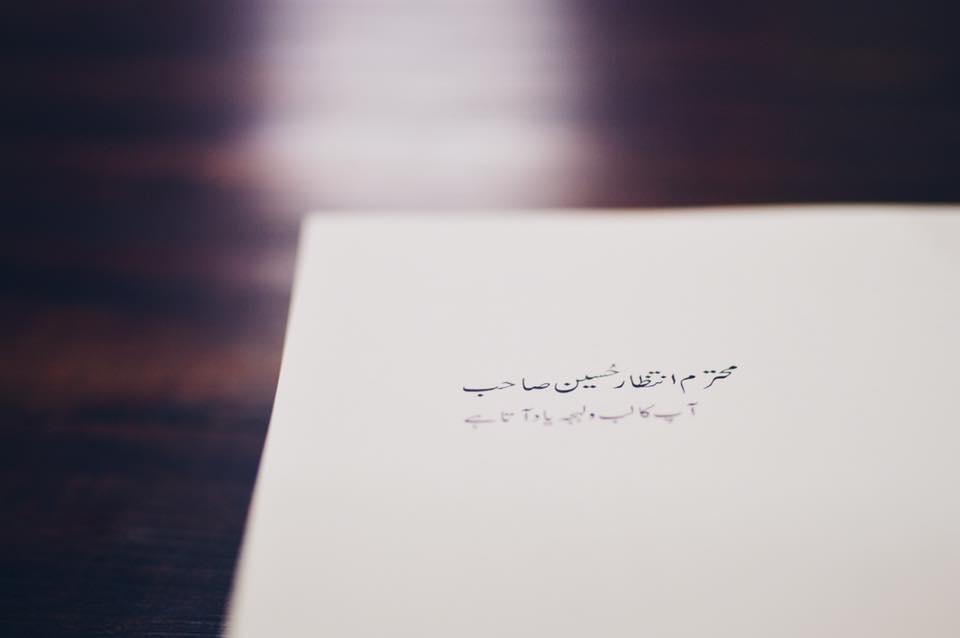 محترم انتظار حُسین صاحب
آپ کا لب و لہجہ یاد آتا ہے